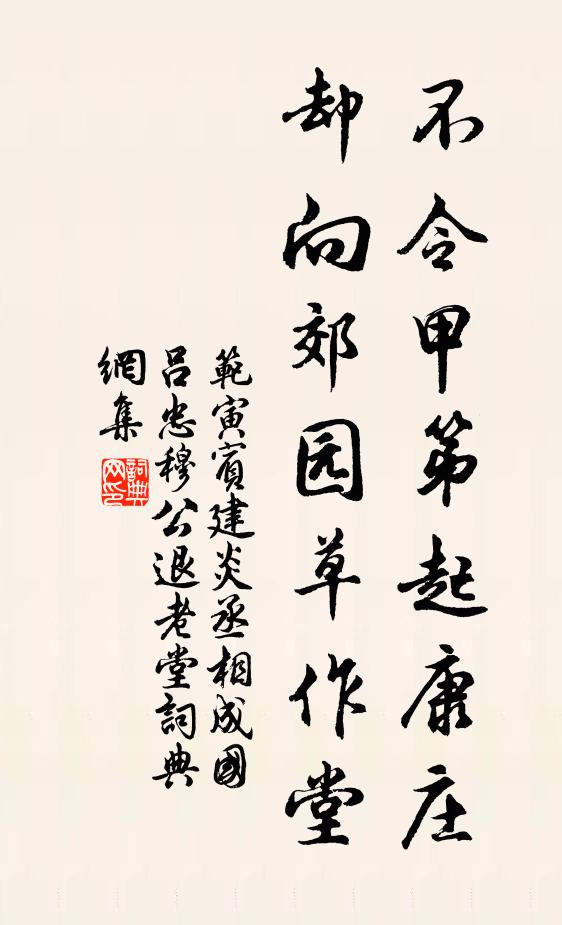 不令甲第起康庄
却向郊园草作堂
範寅賓建炎丞相成國
呂忠穆公退老堂詞典
網集
詞典网印